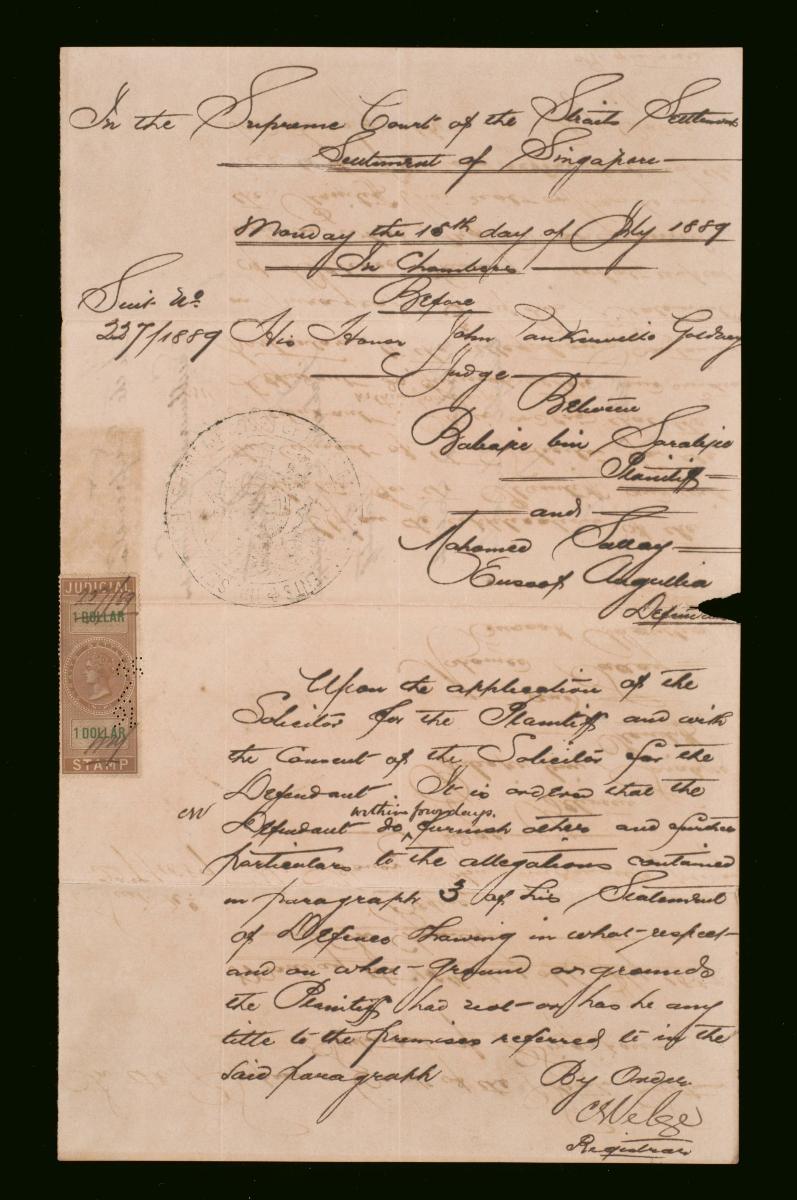 In the Supreme Court of the Straits Settlements
Settlement of Singapore
Monday the 15th day of July 1889
In Chambers
Before
Suit No
227/1889
His Honor John Tankerville Goldney
Judge
Between
bin
Plaintiff
and
Mohamed Sallay
Eusoof Angullia
Defendant
JUDICIAL
1 DOLLAR
1 DOLLAR
STAMP
Upon the application of the
Solicitor for the Plaintiff and with
the Consent of the Solicitor for the
Defendant It is ordered that the
CW
within four days.
Defendant do furnish others and further
particulars to the allegations contained
in paragraph 3 of his Statement
of Defence showing in what respect
and on what ground or grounds
the Plaintiff had not or has he any
title to the premises referred to in the
said paragraph
By Order
Registrar